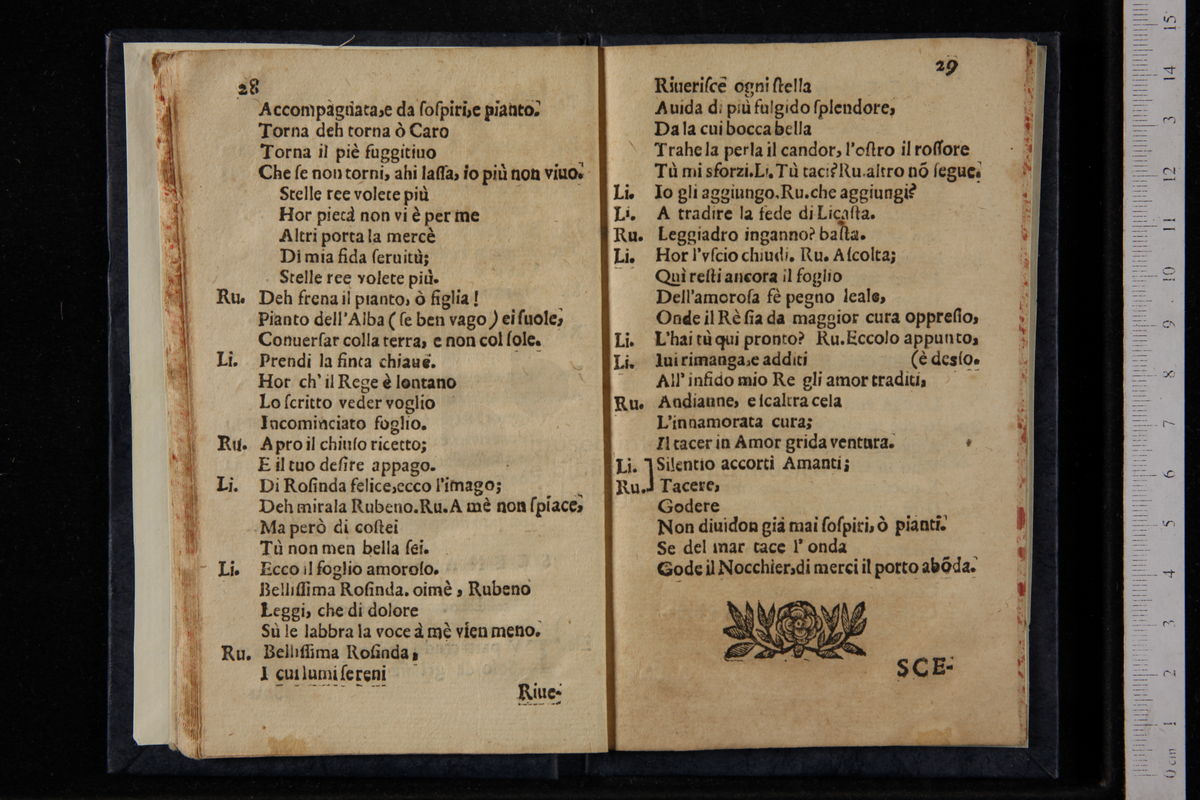 28
Accompagnata,e da ſoſpiri,e pianto.
Torna deh torna ò Caro
Torna il piè fuggitiuo
Che ſe non torni, ahi laſſa, io più non viuo.
Stelle ree volete più
Hor pietà non vi è per me
Altri porta la mercè
Di mia fida ſeruitù;
Stelle ree volete più.
Ru. Deh frena il pianto, ò figlia!
Pianto dell'Alba (ſe ben vago) ei ſuole,
Conuerſar colla terra, e non col ſole.
Li. Prendi la finta chiaue.
Hor ch' il Rege è lontano
Lo ſcritto veder voglio
Incominciato foglio.
Ru. Apro il chiuſo ricetto;
E il tuo deſire appago.
Li. Di Roſinda felice,ecco l'imago;
Deh mirala Rubeno.Ru.A mè non ſpiace,
Ma però di coſtei
Tù non men bella ſei.
Li. Ecco il foglio amoroſo.
Belliſſima Roſinda. oimè, Rubeno
Leggi, che di dolore
Sù le labbra la voce à mè vien meno.
Ru. Belliſſima Roſinda,
I cui lumi ſereni
Riue-
29
Riueriſce ogni ſtella
Auida di più fulgido ſplendore,
Da la cui bocca bella
Trahe la perla il candor, l'oſtro il roſſore
Tù mi sforzi.Li.Tù taci?Ru.altro nõ ſegue.
Li. Io gli aggiungo.Ru.che aggiungi?
Li. A tradire la fede di Licaſta.
Ru. Leggiadro inganno? baſta.
Li. Hor l'vſcio chiudi. Ru. Aſcolta;
Quì reſti ancora il foglio
Dell'amoroſa fè pegno leale,
Onde il Rè ſia da maggior cura oppreſſo,
Li. L'hai tù qui pronto? Ru.Eccolo appunto,
(è deſſo.
Li. Iui rimanga,e additi
All' infido mio Re gli amor traditi,
Ru. Andianne, e ſcaltra cela
L'innamorata cura;
Il tacer in Amor grida ventura.
Li. Ru. ] Silentio accorti Amanti;
Tacere,
Godere
Non diuidon già mai ſoſpiri, ò pianti.
Se del mar tace l' onda
Gode il Nocchier,di merci il porto abõda.
SCE-